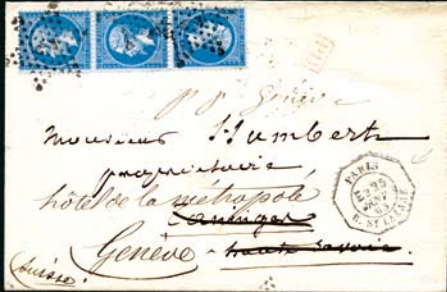 PD
p p Genève
Monsieur Humbert
propriétaire
hôtel de la métropole
Genève
haute Savoie
(Suisse)
PARIS
E2 25
JANV
R. ST LAZARE